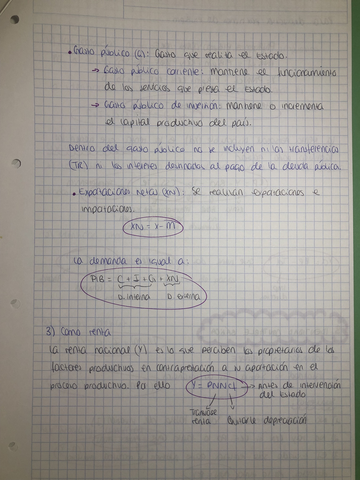 • Gasto público (G): Gasto que realiza el Estado.
→ Gasto público corriente: mantiene el funcionamiento
de los servicios que presta el estado.
→ Gasto público de inversión: mantiene o incrementa
el capital productivo del país.
Dentro del gasto público no se incluyen ni las transferencias
(TR) ni los intereses destinados al pago de la deuda pública.
• Exportaciones Netas (XN): Se realizan exportaciones e
importaciones.
XN = X - M
La demanda es igual a:
PIB = C + I + G + XN
D. interna D. externa
3) Como renta
La renta nacional (Y) es lo que perciben los propietarios de los
factores productivos en contraprestación a su aportación en el
proceso productivo. Por ello Y = PNNcf → antes de intervención
del Estado
renta depreciación